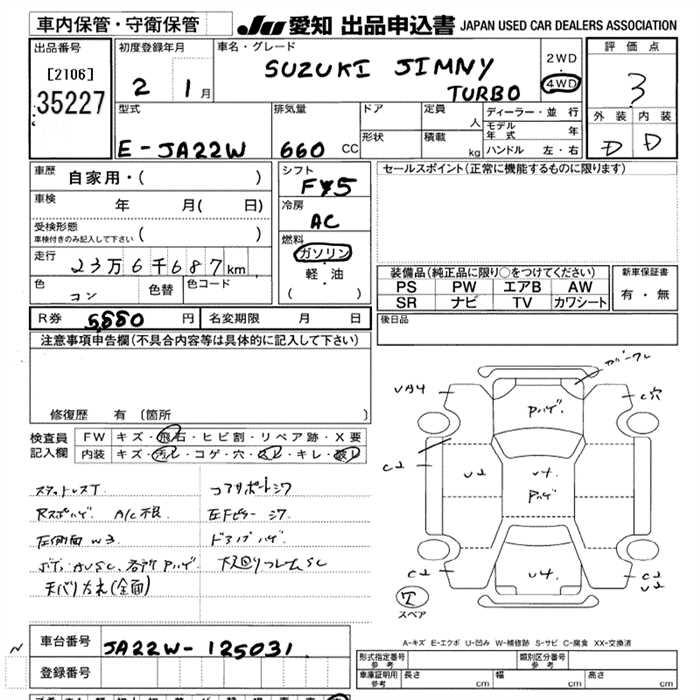 車内保管・守衛保管 JU 愛知 出品申込書 JAPAN USED CAR DEALERS ASSOCIATION
出品番号 初度登録年月 車名・グレード 評価点
[2106] 2 1月 SUZUKI JIMNY 2WD 3
35227 TURBO 4WD
型式 排気量 ドア 定員 人 ディーラー・並行 外装 内装
E-JA22W 660 CC 形状 積載 kg モデル年式 年 D D
ハンドル 左・右
車歴 自家用・( ) シフト F5 セールスポイント(正常に機能するものに限ります)
車検 年 月( 日) 冷房 AC
受検形態
車検付きのみ記入して下さい ( ) 燃料
走行 23万6千687km ガソリン
色 コン 色替 色コード 軽・油
( )
装備品(純正品に限り○をつけてください) 新車保証書
PS PW エアB AW 有・無
SR ナビ TV カワシート
R券 5,880 円 名変期限 月 日 後日品
注意事項申告欄(不具合内容等は具体的に記入して下さい)
修復歴 有 〔箇所 〕
検査員 FW キズ・飛石・ヒビ割・リペア跡・X要
記入欄 内装 キズ・汚レ・コゲ・穴・スレ・キレ・破レ
スタッドレスT
A/C不良
左側面 W3
天バリ方れ(全面)
UA4
Pハゲ.
C穴
C2
U2
U4.
Pハゲ
C2
U4.
C2
U2
T
スペア
A-キズ E-エクボ U-凹み W-補修跡 S-サビ C-腐食 XX-交換済
車台番号 JA22W-125031
登録番号
形式指定番号 参考 類別区分番号 参考
車庫証明用 参考 長さ cm 幅 cm 高さ cm